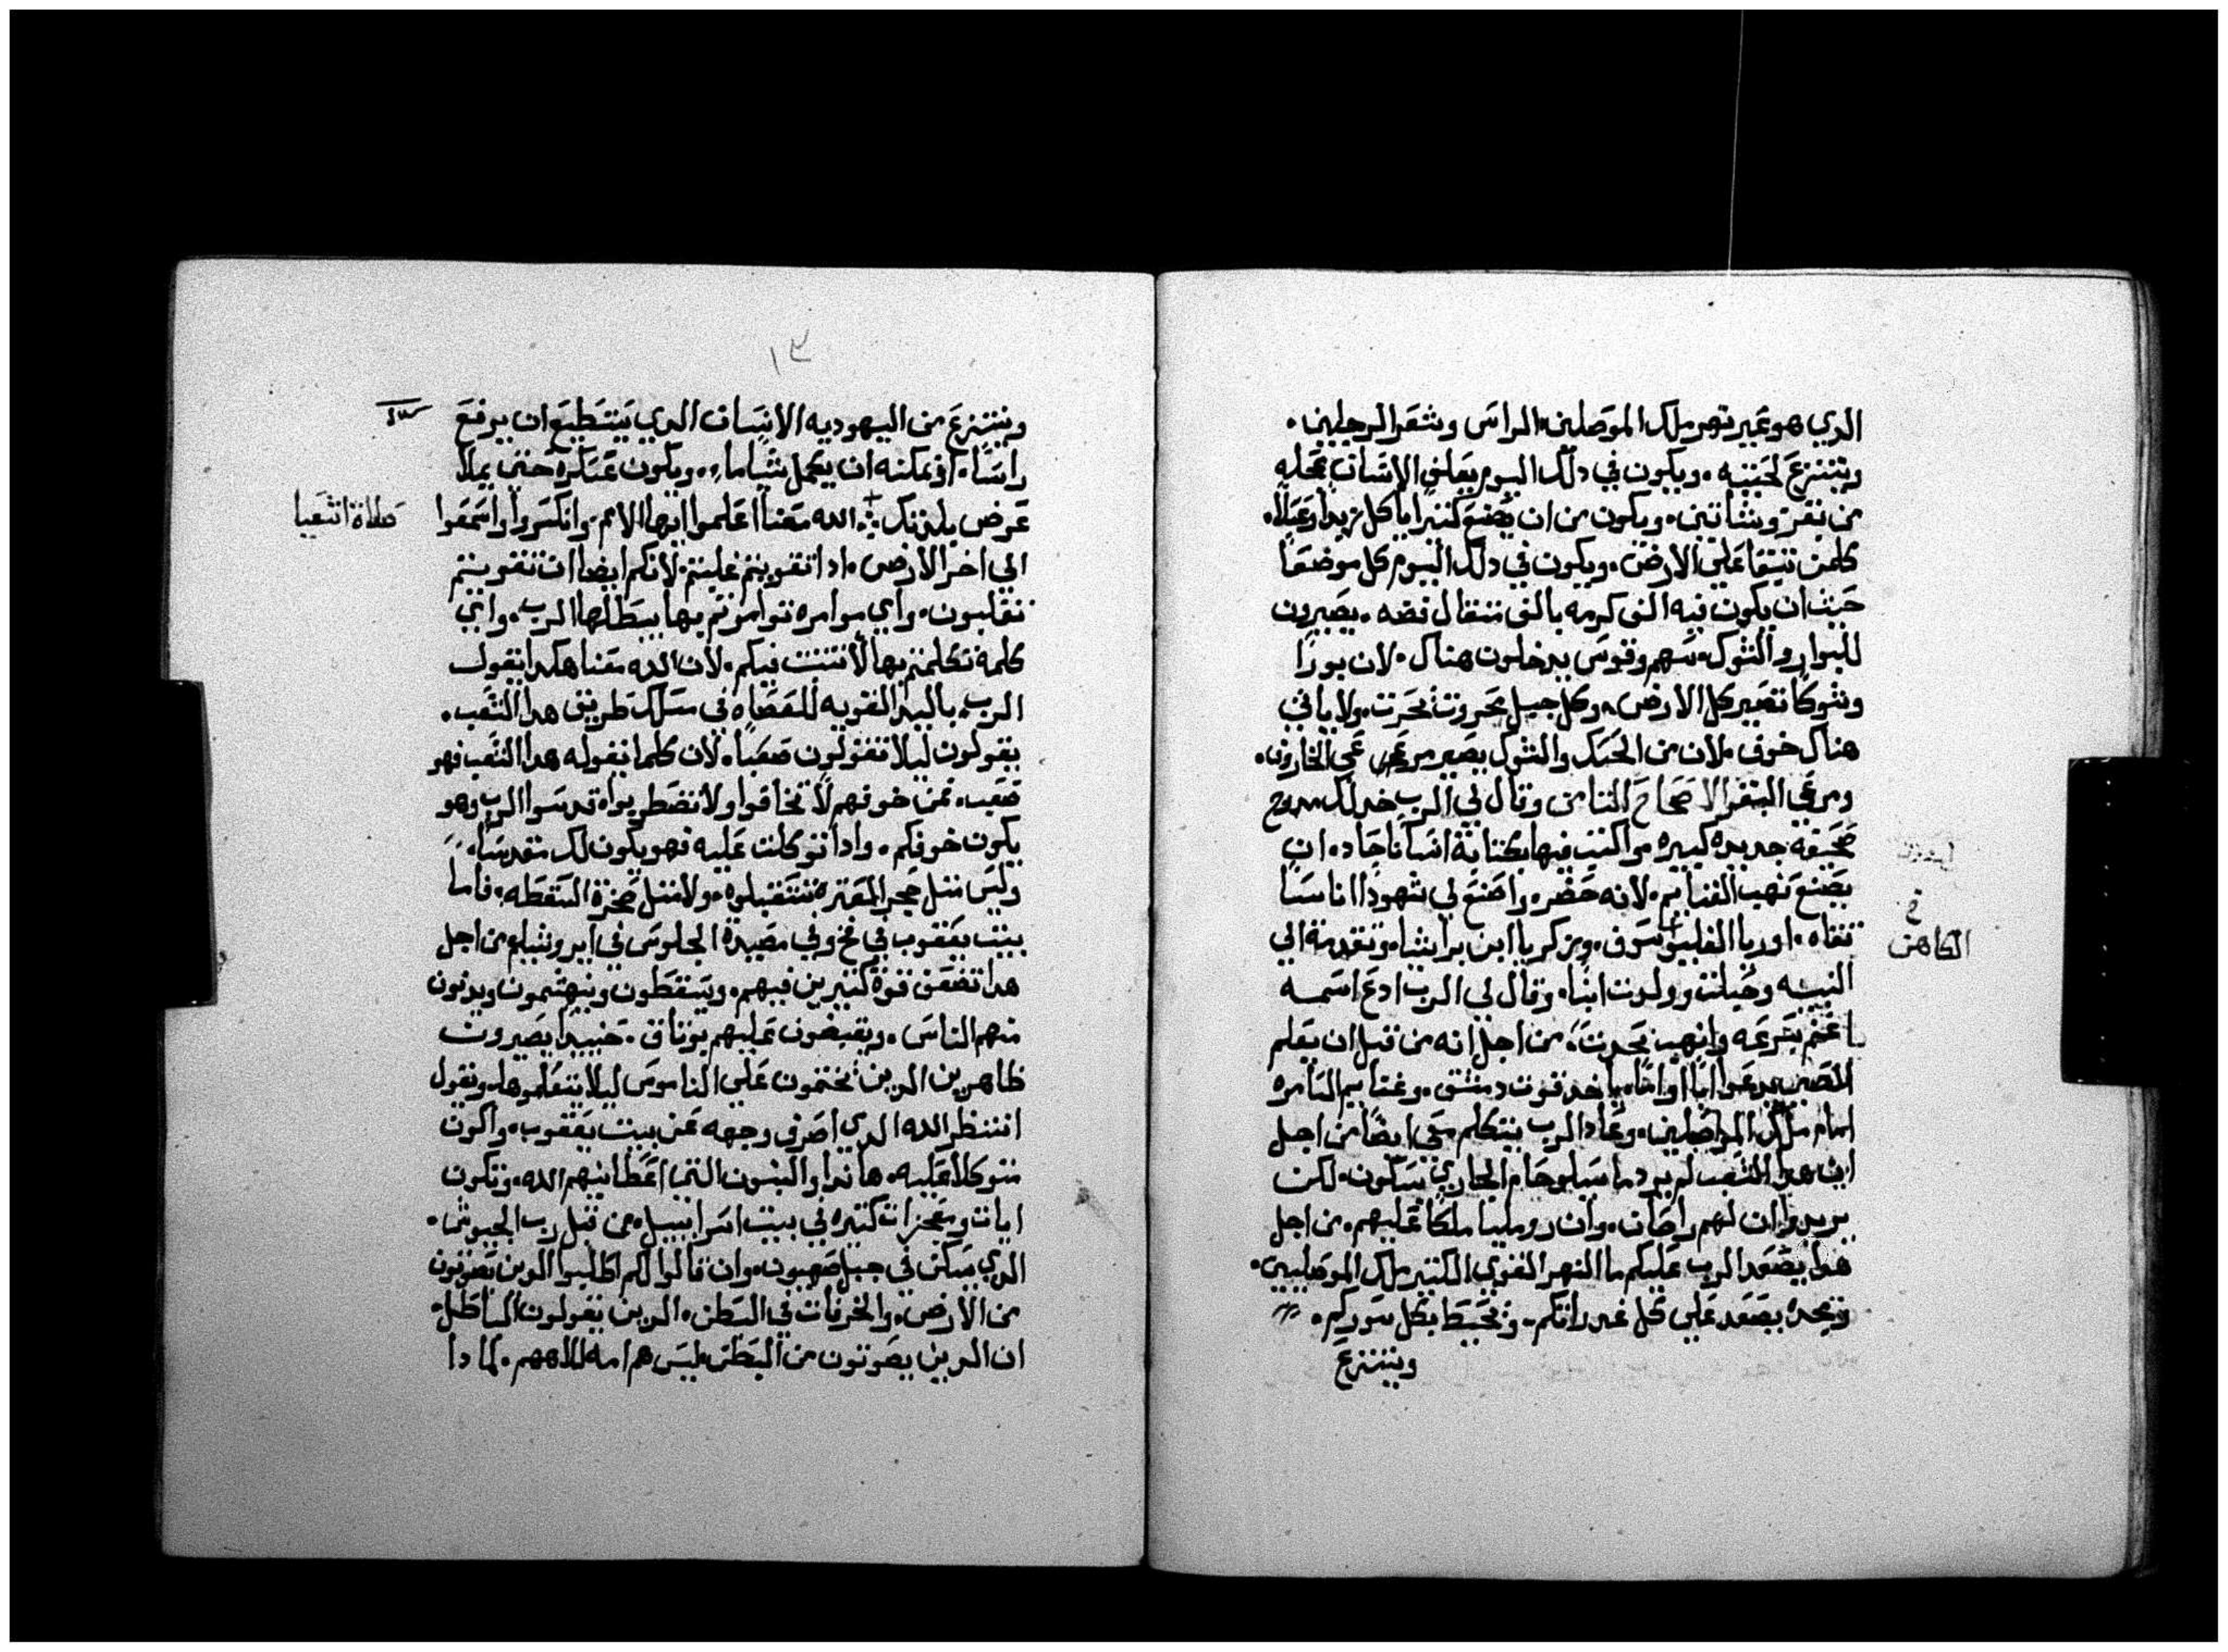 الدي هو عبر نهر ملك الموصلين الراس وشعر الرجلين.
وتنتزع لحيته. ويكون في دلك اليوم يعلف الانسان عجله
من بقر وشاتين. ويكون من ان يصنع كتيرا ياكل زبدا وعسلا.
كلمن تبقا علي الارض. ويكون في دلك اليوم كل موضعا
حيت ان يكون فيه الف كرمه بالف متقال فضه. يصيرون
للبوار والشوك. سهم وقوس يدخلون هناك. لان بورا
وشوكا تصير كل الارض. وكل جبل محروت تحرت. ولا ياتي
هناك خوف. لان من الحسك والشوك يصير مرعي الخاروف.
ومرعي البقر الاصحاح التامن وقال لي الرب خد لك درج
صحيفه جديده كبيره واكتب فيها بكتابة انسانا حاده. ان
يصنع نهب الغنايم. لانه حضر. واصنع لي شهودا اناسا
تقاه. اوريا وزكريا ابن براشيا. وتقدمة الي
النبيه وحبلت وولدت ابنا. وقال لي الرب ادع اسمه
اغنم بسرعه وانهب بحدت. من اجل انه من قبل ان يعلم
الصبي يدعوا ابا او اما. ياخد قوت دمشق. وغنايم السامره
امام ملك الموصلين. وعاد الرب يتكلم معي ايضا من اجل
ان هدا الشعب لم يرد ما سيلوحام الجاري بسكون. لكن
يريدوا ان لهم راصان. وابن روميليا ملكا عليهم. من اجل
هدا يصعد الرب عليكم ما النهر القوي الكتير ملك الموصليين.
ومجده يصعد علي كل غدرانكم. وتحيط بكل سوركم.
وينتزع
في
الكاهن
١٣
وينتزع من اليهوديه الانسان الدي يستطيع ان يرفع
راسا. او يمكنه ان يعمل شيا ما. ويكون عسكره حتي يملا
عرض بلدتك. الله معنا اعلموا ايها الامم. وانكسروا واسمعوا
صلاة اشعيا
الي اخر الارض. ادا تقويتم غلبتم. لانكم ايضا ان تتقويتم
تقلبون. واي موامره توامرتم بها يبطلها الرب. واي
كلمة تكلمتم بها لا تتبت فيكم. لان الله معنا هكدا يقول
الرب. باليد القويه للعصاه في مسلك طريق هدا الشعب.
يقولون ليلا تقولون صعبا. لان كلما يقوله هدا الشعب فهو
صعب. فمن خوفهم لا تخافوا ولا تضطربوا. قدسوا الرب وهو
يكون خوفكم. وادا توكلت عليه فهو يكون لك مقدسا.
وليس متل حجر المعتره تستقبلوه. ولا متل صخرة السقطه. فاما
بيت يعقوب في فخ وفي مصيدة الجلوس في ابروشليم من اجل
هدا تضعف قوة كتيرين فيهم. ويسقطون وينهشمون ويدنون
منهم الناس. ويقبضون عليهم بوتاق. حينيدا يصيرون
ظاهرين الدين يختمون علي الناموس ليلا يتعلموها. ونقول
انتظر الله الدي اصرف وجهه عن بيت يعقوب. واكون
متوكلا عليه. هاندا والبنون التي اعطانيهم الله. وتكون
ايات ومعجزات كتيره في بيت اسراييل. من قبل رب الجيوش.
الدي يسكن في جبل صهيون. وان قالوا لكم اطلبوا الدين يصوتون
من الارض. والخرفات في البطن. الدين يقولون الباطل.
ان الدين يصوتون من البطن ليس هم امه لالاههم. لما دا